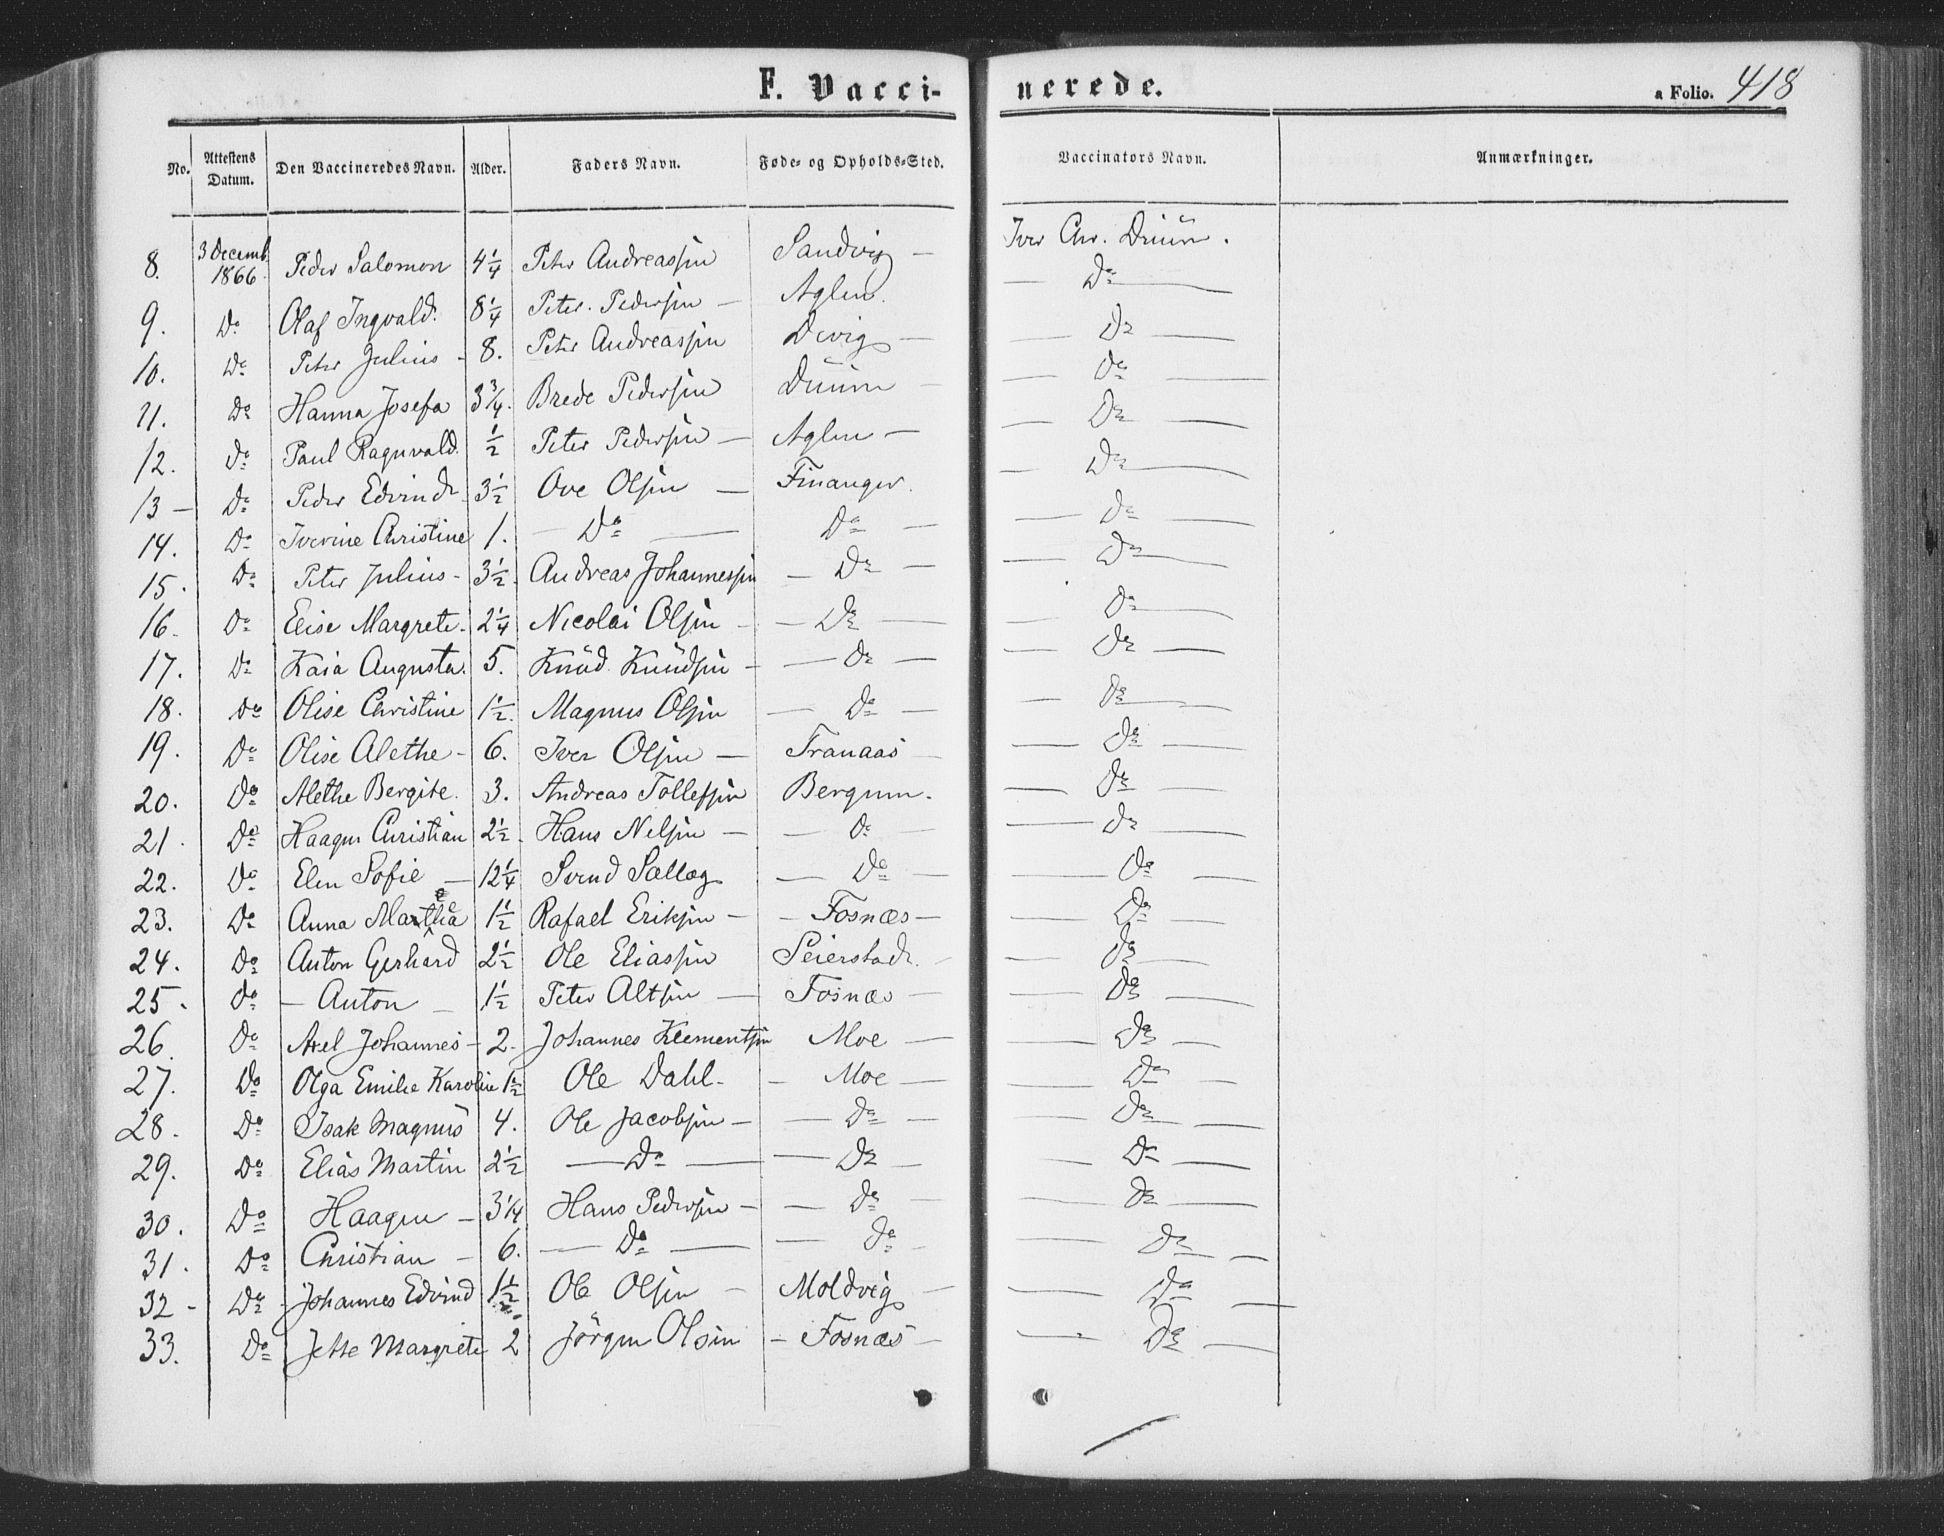 F. Vaccinerede. a Folio. 418
No. Attestens Datum. Den Vaccineredes Navn. Alder. Faders Navn. Føde- og Opholds-Sted. Vaccinators Navn. Anmærkninger.
8. 3 Decemb 1866. Peder Salomon 4 1/4 Peter Andreassen Sandvig — Iver Chr. Duun.
9. Do Olaf Ingvald. 8 1/4 Peter Pedersen — Aglen. — Do —
10. Do Peter Julius - 8. Peter Andreassen Devig — — Do —
11. Do Hanna Josefa 3 3/4. Brede Pedersen Duun — — Do —
12. Do Paul Ragnvald. 1/2 Peter Pedersen — Aglen — — Do —
13 — Do Peder Edvind 3 1/2 Ove Olsen — Finanger. — Do —
14. Do Iverine Christine 1. — Do — Do — — Do —
15. Do Peter Julius - 3 1/2. Andreas Johannessen — Do — — Do —
16. Do Elise Margrete. 2 1/4 Nicolai Olsen — Do — — Do —
17. Do Kaia Augusta. 5. Knud Knudsen - — Do — — Do —
18. Do Olise Christine 1 1/2. Magnus Olsen — Do — — Do —
19. Do Olise Alethe - 6. Iver Olsen — Tranaas — — Do —
20. Do Alethe Bergite. 3. Andreas Tollefsen Bergum. — Do —
21. Do Haagen Christian 2 1/2. Hans Nelsen — — Do — — Do —
22. Do Elen Sofie — 12 1/4 Svend Sællæg — Do — — Do —
23. Do Anna Marthea 1 1/2 Rafael Eriksen — - Fosnæs — — Do —
24. Do Anton Gerhard 2 1/2 Ole Eliassen Seierstad. — Do —
25. Do — Anton — 1 1/2 Peter Altsen — Fosnæs — — Do —
26. Do Axel Johannes - 2. Johannes Klementsen Moe — — Do —
27. Do Olga Emilie Karoline 1 1/2 Ole Dahl - - Moe — — Do —
28. Do Isak Magnus 4. Ole Jacobsen — — Do — — Do —
29. Do Elias Martin 2 1/2 — Do — — Do — — Do —
30. Do Haagen — 3 1/4 Hans Pedersen — — Do — — Do —
31. Do Christian — 6. — Do — — Do — — Do —
32 - Do Johannes Edvind 1 1/2 Ole Olsen — Moldvig — — Do —
33. Do Jette Margrete 2 Jørgen Olsen — Fosnæs — — Do —